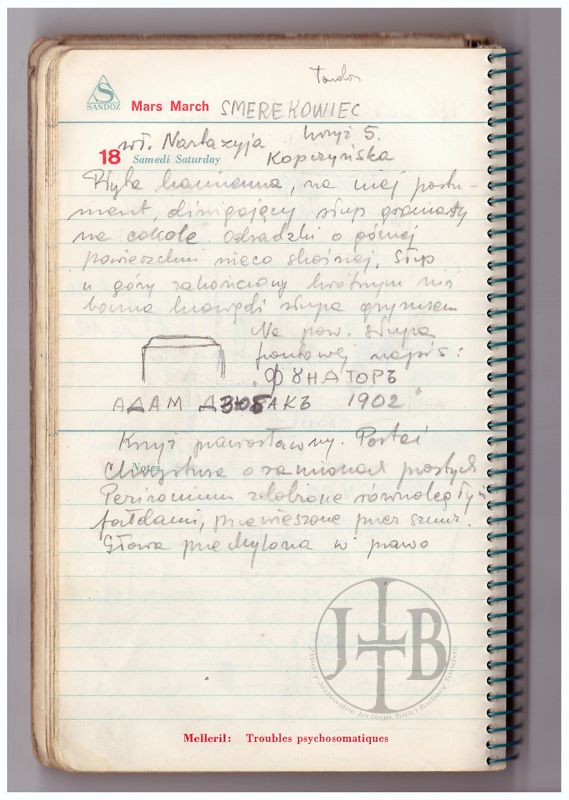 Tondos
S
SANDOZ
Mars March SMEREKOWIEC
wł. Nastazyja krzyż 5.
18 Samedi Saturday Kopczyńska
Płyta kamienna, na niej postu-
ment, dźwigający słup graniasty
na cokole odsadzki o górnej
powierzchni nieco skośnej. Słup
u góry zakończony krótszym niż
boczna krawędź słupa gzymsem
Na pow. słupa
frontowej napis:
"ФУНДАТОРЪ
АДАМ ДЗЮБАКЪ 1902"
Krzyż prawosławny. Postać
Notes
Chrystusa o ramionach prostych
Perizonium zdobione równoległymi
fałdami, przewieszone przez sznur.
Głowa przechylona w prawo
JTB
Zbiory archiwalne Jerzego Tura i Barbary Tondos
Melleril: Troubles psychosomatiques